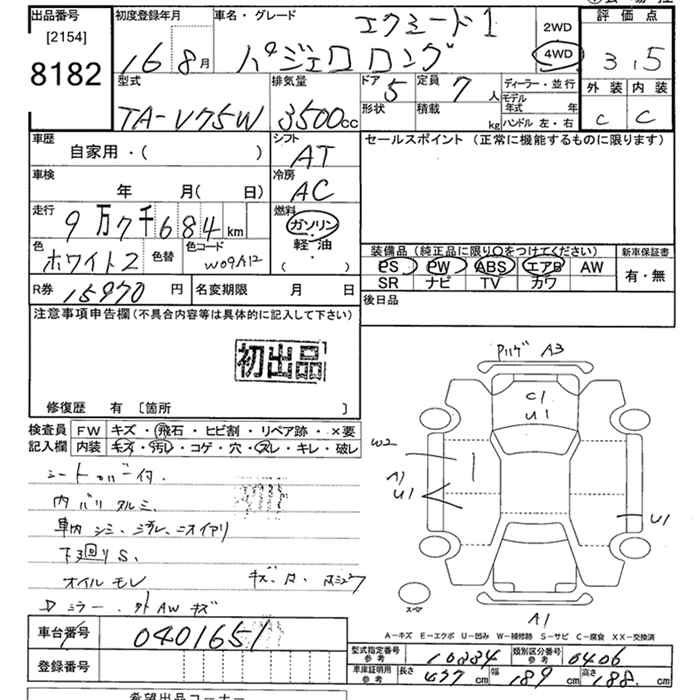 出品番号 初度登録年月 車名・グレード エクシード1 2WD 評価点
[2154] 4WD
8182 16 8月 パジェロ ロング 3.5
型式 排気量 ドア 5 定員 7人 ディーラー・並行 外装 内装
TA-V75W 3500cc 形状 積載 kg モデル年式 年 C C
ハンドル 左・右
車歴 シフト セールスポイント (正常に機能するものに限ります)
自家用・( ) AT
車検 冷房
年 月( 日) AC
走行 燃料
9万7千684km ガソリン
色 色替 色コード 軽・油 装備品 (純正品に限り○をつけてください) 新車保証書
ホワイト2 W09A12 ( ) PS PW ABS エアB AW 有・無
SR ナビ TV カワ
R券 15970円 名変期限 月 日 後日品
注意事項申告欄(不具合内容等は具体的に記入して下さい)
初出品
修復歴 有 〔箇所 〕
検査員 FW キズ・飛石・ヒビ割・リペア跡・×要
記入欄 内装 キズ・汚レ・コゲ・穴・スレ・キレ・破レ
シートカバー付.
内バリヌルミ.
車内シミ.
下回りS.
オイルモレ
Dミラー.外AWキズ
車台番号 0401651
登録番号
希望出品コーナー
A3
C1
U1
W2
A1
U1
U1
スペア
A1
A-キズ E-エクボ U-凹み W-補修跡 S-サビ C-腐食 XX-交換済
型式指定番号 参考 10884 類別区分番号 参考 0406
車庫証明用 参考 長さ 477cm 幅 189cm 高さ 188cm